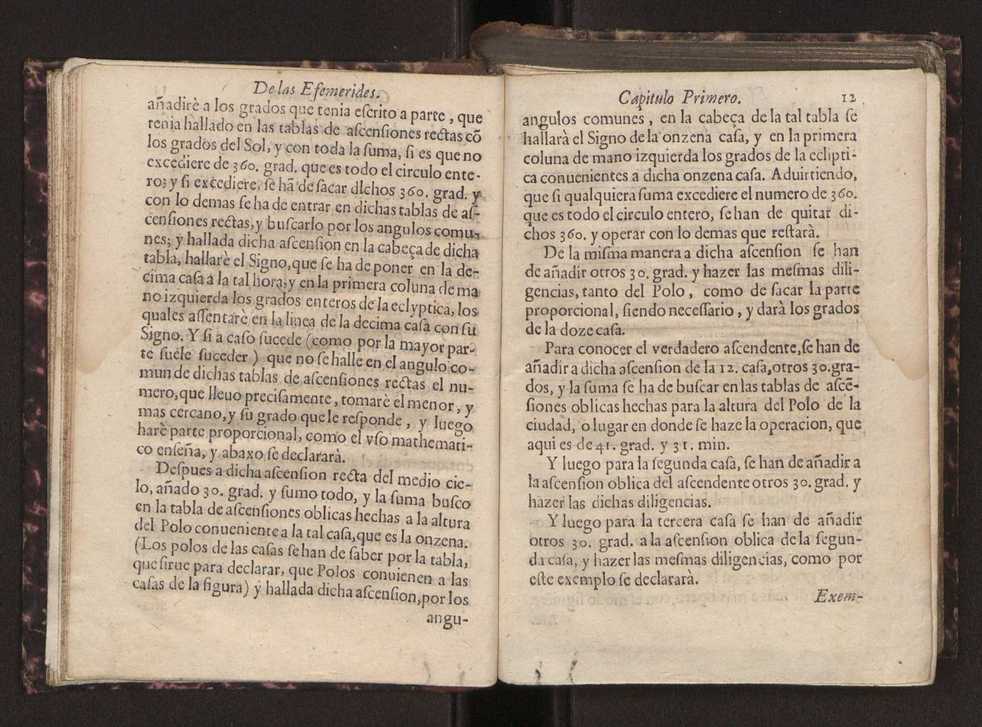 De las Efemerides.
añadirè a los grados que tenia eſcrito a parte, que
tenia hallado en las tablas de aſcenſiones rectas cõ
los grados del Sol, y con toda la ſuma, ſi es que no
excediere de 360. grad. que es todo el circulo ente-
ro; y ſi excediere, ſe ha de ſacar dichos 360. grad. y
con lo demas ſe ha de entrar en dichas tablas de aſ-
cenſiones rectas, y buſcarlo por los angulos comu-
nes; y hallada dicha aſcenſion en la cabeça de dicha
tabla, hallarè el Signo, que ſe ha de poner en la de-
cima caſa a la tal hora; y en la primera coluna de ma
no izquierda los grados enteros de la eclyptica, los
quales aſſentarè en la linea de la decima caſa con ſu
Signo. Y ſi a caſo ſucede (como por la mayor par-
te ſuele ſuceder) que no ſe halle en el angulo co-
mun de dichas tablas de aſcenſiones rectas el nu-
mero, que lleuo preciſamente, tomarè el menor, y
mas cercano, y ſu grado que le reſponde, y luego
harè parte proporcional, como el vſo mathemati-
co enſeña, y abaxo ſe declararà.
Deſpues a dicha aſcenſion recta del medio cie-
lo, añado 30. grad. y ſumo todo, y la ſuma buſco
en la tabla de aſcenſiones oblicas hechas a la altura
del Polo conueniente a la tal caſa, que es la onzena.
(Los polos de las caſas ſe han de ſaber por la tabla,
que ſirue para declarar, que Polos conuienen a las
caſas de la figura) y hallada dicha aſcenſion, por los
angu-
Capitulo Primero. 12
angulos comunes, en la cabeça de la tal tabla ſe
hallarà el Signo de la onzena caſa, y en la primera
coluna de mano izquierda los grados de la eclipti-
ca conuenientes a dicha onzena caſa. Aduirtiendo,
que ſi qualquiera ſuma excediere el numero de 360.
que es todo el circulo entero, ſe han de quitar di-
chos 360. y operar con lo demas que reſtarà.
De la miſma manera a dicha aſcenſion ſe han
de añadir otros 30. grad. y hazer las meſmas dili-
gencias, tanto del Polo, como de ſacar la parte
proporcional, ſiendo neceſſario, y darà los grados
de la doze caſa.
Para conocer el verdadero aſcendente, ſe han de
añadir a dicha aſcenſion de la 12. caſa, otros 30. gra-
dos, y la ſuma ſe ha de buſcar en las tablas de aſcẽ-
ſiones oblicas hechas para la altura del Polo de la
ciudad, o lugar en donde ſe haze la operacion, que
aqui es de 41. grad. y 31. min.
Y luego para la ſegunda caſa, ſe han de añadir a
la aſcenſion oblica del aſcendente otros 30. grad. y
hazer las dichas diligencias.
Y luego para la tercera caſa ſe han de añadir
otros 30. grad. a la aſcenſion oblica de la ſegun-
da caſa, y hazer las meſmas diligencias, como por
eſte exemplo ſe declararà.
Exem-